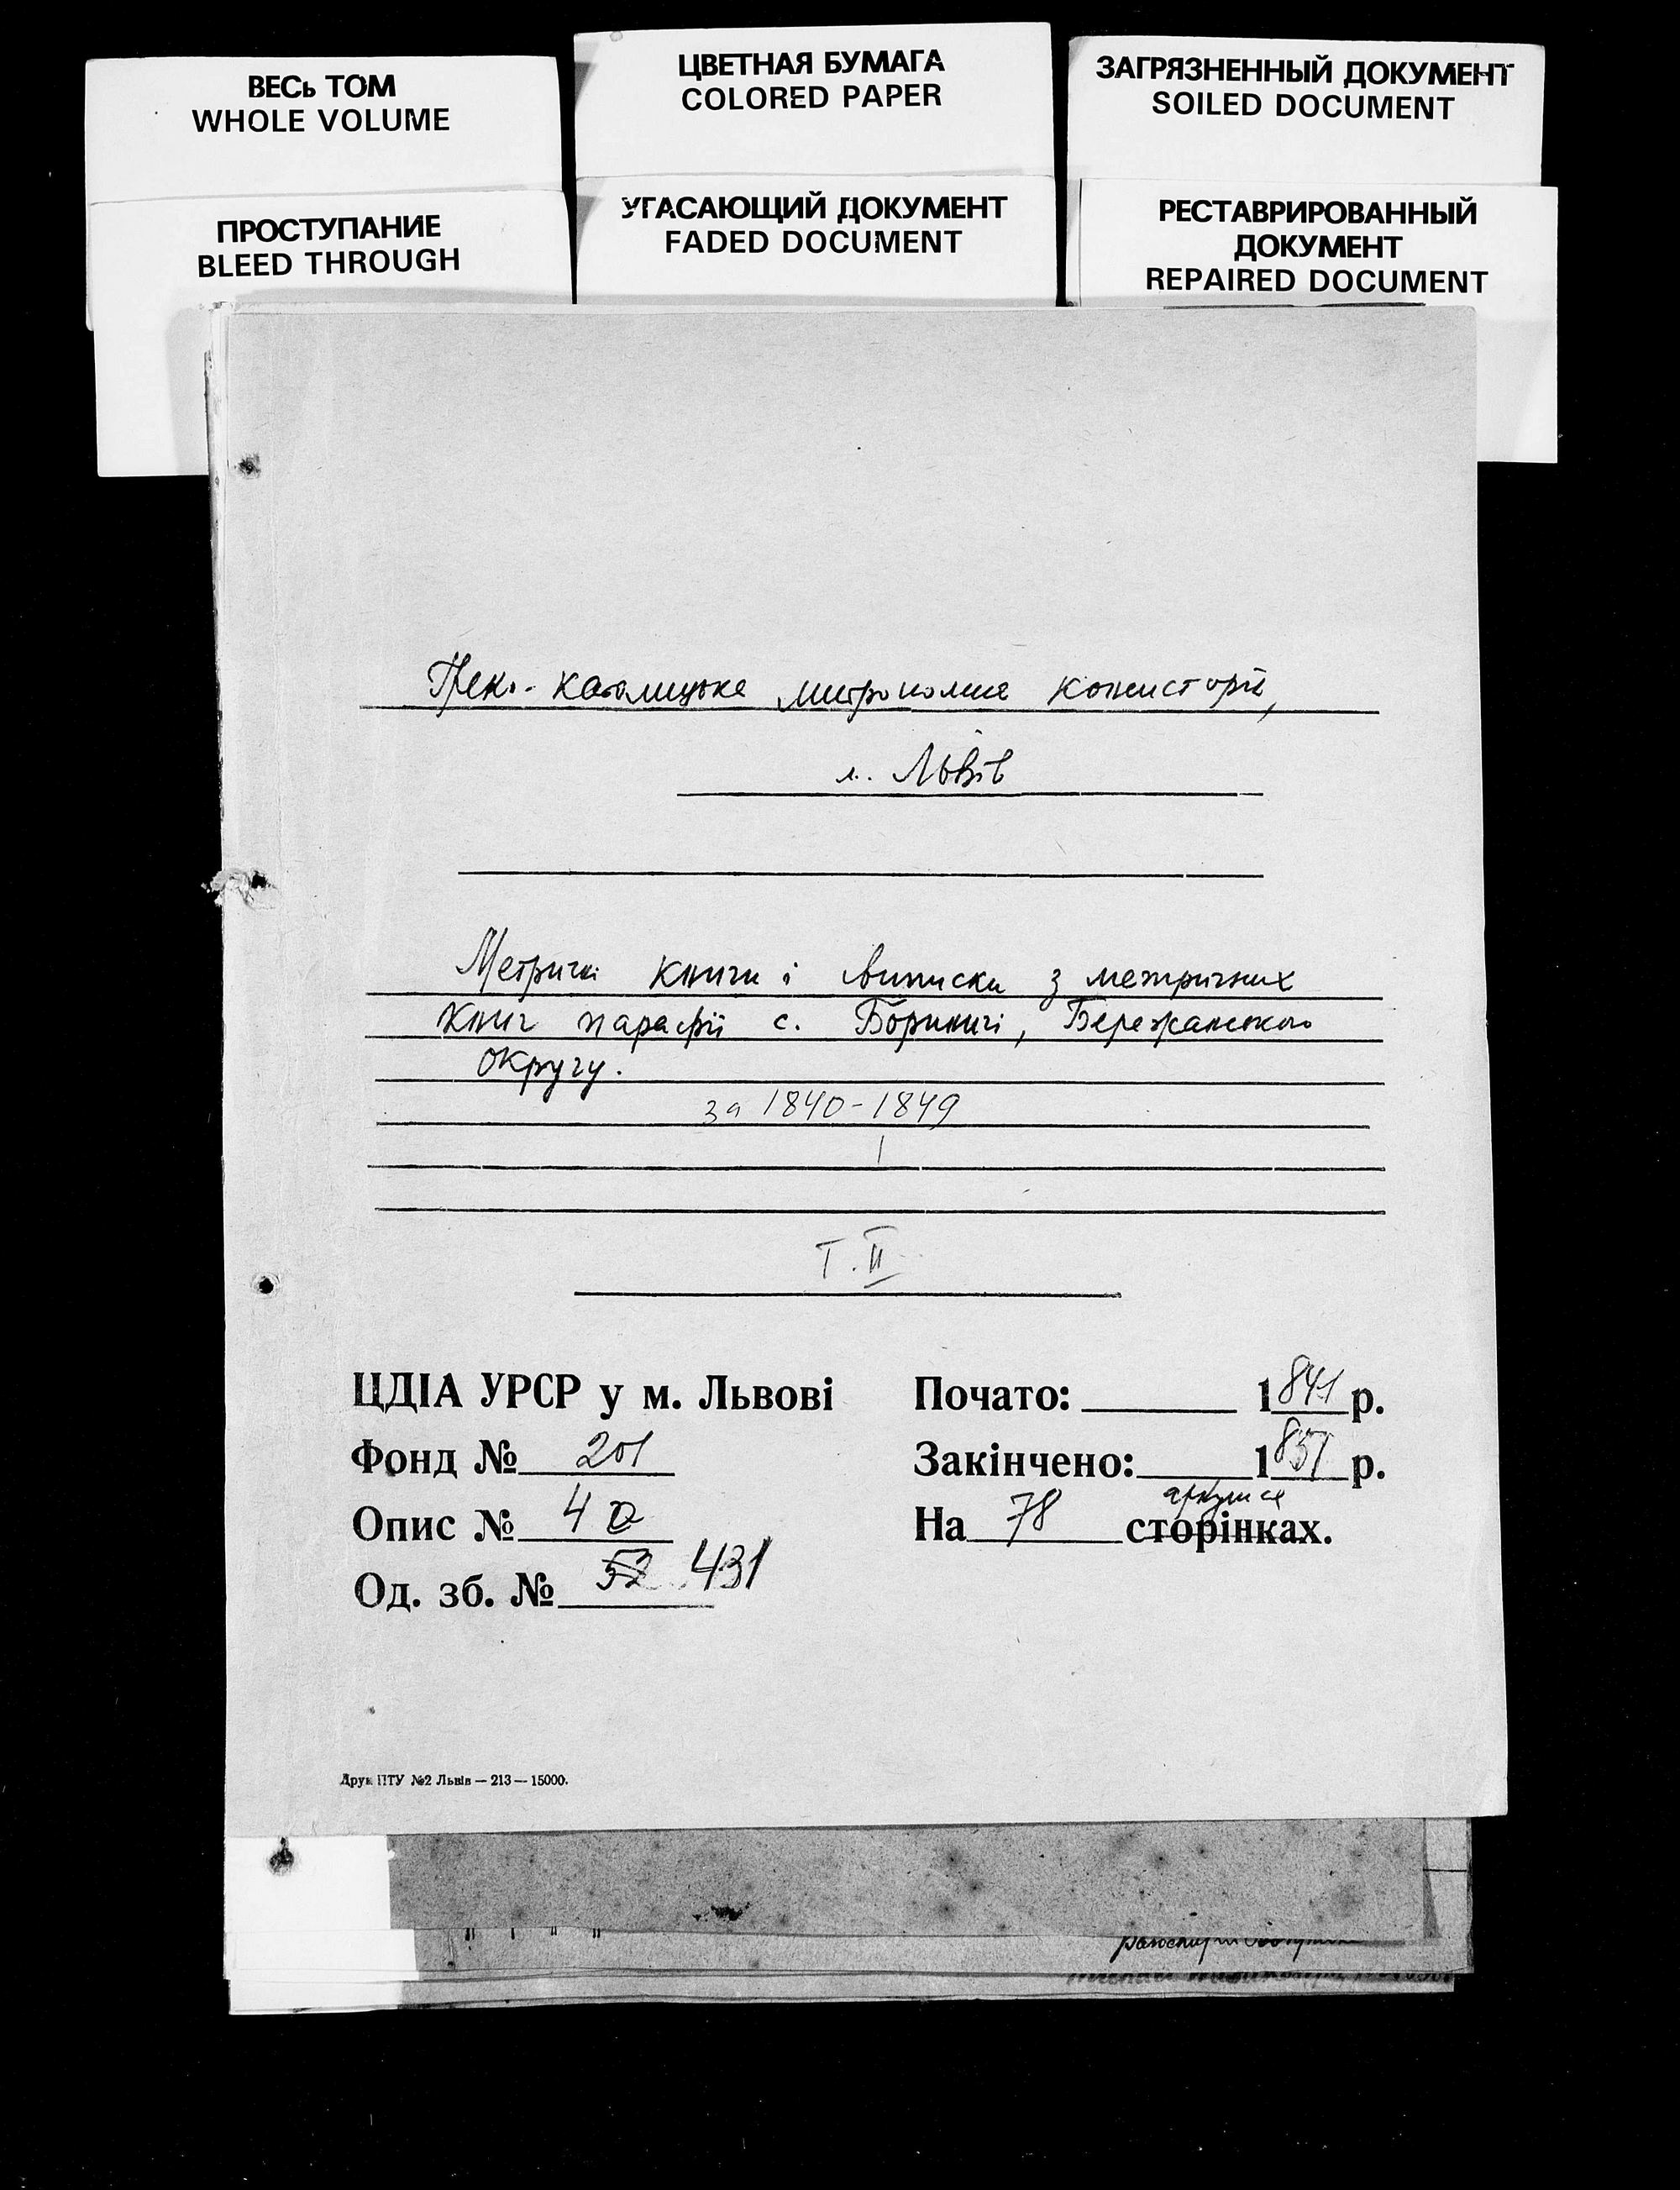 ВЕСЬ ТОМ
WHOLE VOLUME
ЦВЕТНАЯ БУМАГА
COLORED PAPER
ЗАГРЯЗНЕННЫЙ ДОКУМЕНТ
SOILED DOCUMENT
ПРОСТУПАНИЕ
BLEED THROUGH
УГАСАЮЩИЙ ДОКУМЕНТ
FADED DOCUMENT
РЕСТАВРИРОВАННЫЙ
ДОКУМЕНТ
REPAIRED DOCUMENT
Греко-католицька митрополича консисторія,
м. Львів
Метричні книги і виписки з метричних
книг парафії с. Бориничі, Бережанського
округу.
за 1840-1849
Т. II
ЦДІА УРСР у м. Львові
Фонд № 201
Опис № 4а
Од. зб. № 52 431
Почато: 1841 р.
Закінчено: 1851 р.
аркушах
На 78 сторінках.
Друк ПТУ №2 Львів — 213 — 15000.